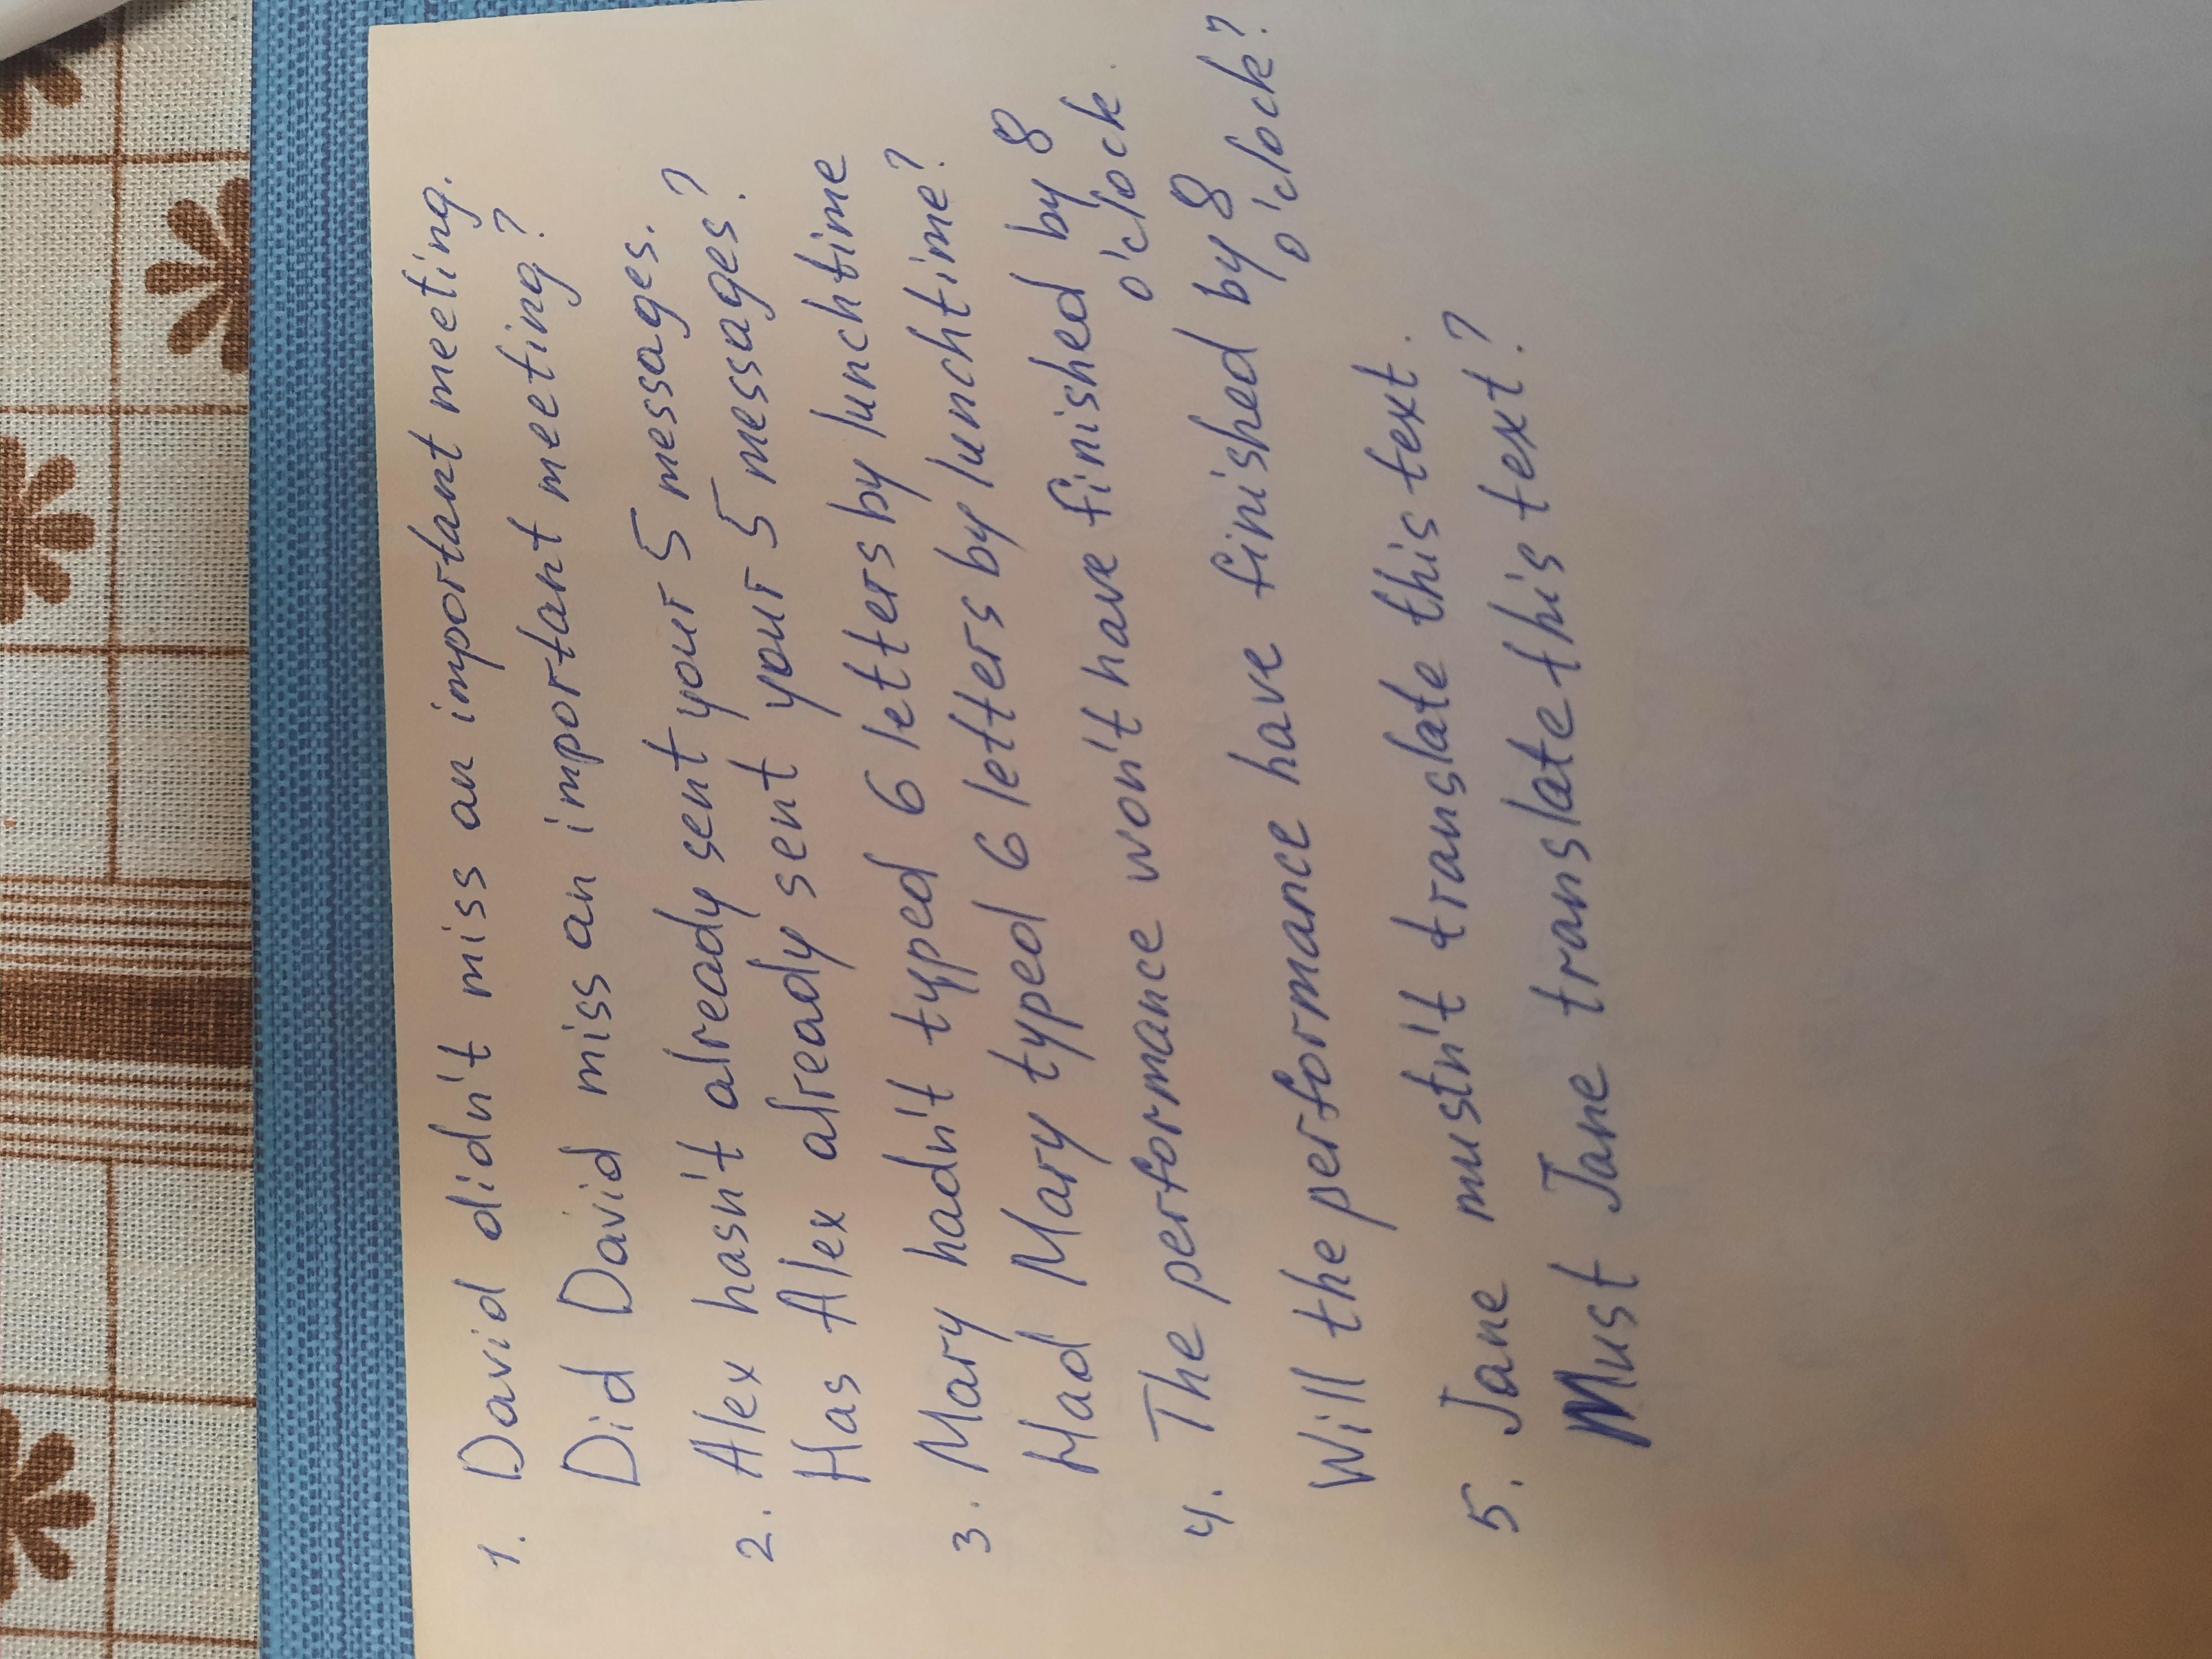 1. David didn't miss an important meeting.
Did David miss an important meeting?
2. Alex hasn't already sent your 5 messages.
Has Alex already sent your 5 messages?
3. Mary hadn't typed 6 letters by lunchtime
Had Mary typed 6 letters by lunchtime?
4. The performance won't have finished by 8
o'clock.
Will the performance have finished by 8
o'clock?
5. Jane mustn't translate this text.
Must Jane translate this text?